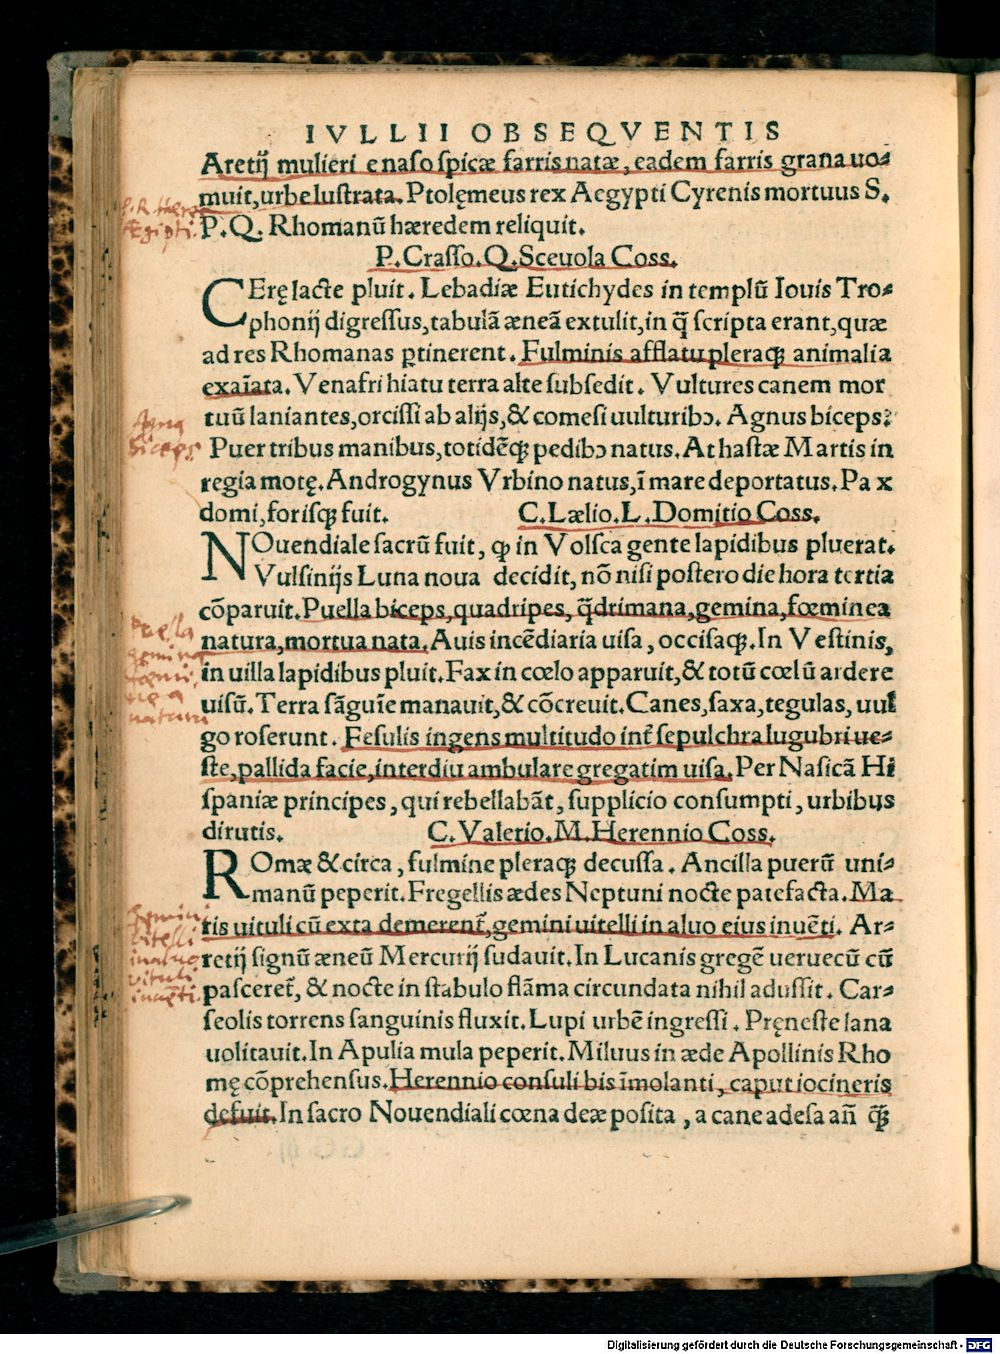 IVLLII OBSEQVENTIS
Aretij mulieri e naso spicæ farris natæ, eadem farris grana uo⸗
muit, urbe lustrata. Ptolęmeus rex Aegypti Cyrenis mortuus S.
P. Q. Rhomanũ hæredem reliquit.
P. Crasso. Q. Sceuola Coss.
CErę lacte pluit. Lebadiæ Eutichydes in templũ Iouis Tro⸗
phonij digressus, tabulã æneã extulit, in q̃ scripta erant, quæ
ad res Rhomanas ꝑtinerent. Fulminis afflatu pleraqꝫ animalia
exaĩata. Venafri hiatu terra alte subsedit. Vultures canem mor
tuũ laniantes, orcissi ab alijs, & comesi uulturibꝰ. Agnus biceps:
Puer tribus manibus, totidẽqꝫ pedibꝰ natus. At hastæ Martis in
regia motę. Androgynus Vrbino natus, ĩ mare deportatus. Pax
domi, forisqꝫ fuit. C. Lælio. L. Domitio Coss.
NOuendiale sacrũ fuit, ꝙ in Volsca gente lapidibus pluerat.
Vulsinijs Luna noua decidit, nõ nisi postero die hora tertia
cõparuit. Puella biceps, quadripes, q̃drimana, gemina, fœminea
natura, mortua nata. Auis incẽdiaria uisa, occisaqꝫ. In Vestinis,
in uilla lapidibus pluit. Fax in cœlo apparuit, & totũ cœlũ ardere
uisũ. Terra sãguĩe manauit, & cõcreuit. Canes, saxa, tegulas, uul
go roserunt. Fesulis ingens multitudo int̃ sepulchra lugubri ue⸗
ste, pallida facie, interdiu ambulare gregatim uisa. Per Nasicã Hi
spaniæ principes, qui rebellabãt, supplicio consumpti, urbibus
dirutis. C. Valerio. M. Herennio Coss.
ROmæ & circa, fulmine pleraqꝫ decussa. Ancilla puerũ uni⸗
manũ peperit. Fregellis ædes Neptuni nocte patefacta. Ma
ris uituli cũ exta demerent̃, gemini uitelli in aluo eius inuẽti. Ar⸗
retij signũ æneũ Mercurij sudauit. In Lucanis gregẽ ueruecũ cũ
pasceret̃, & nocte in stabulo flãma circundata nihil adussit. Car⸗
seolis torrens sanguinis fluxit. Lupi urbẽ ingressi. Pręneste lana
uolitauit. In Apulia mula peperit. Miluus in æde Apollinis Rho
mę cõprehensus. Herennio consuli bis ĩmolanti, caput iocineris
defuit. In sacro Nouendiali cœna deæ posita, a cane adesa añ qꝫ̃
Ægipti.
biceps
Puella
gemina
fœmi
nea
natura
Gemini
vitelli
in aluo
vituli
inuẽti.
Digitalisierung gefördert durch die Deutsche Forschungsgemeinschaft - DFG